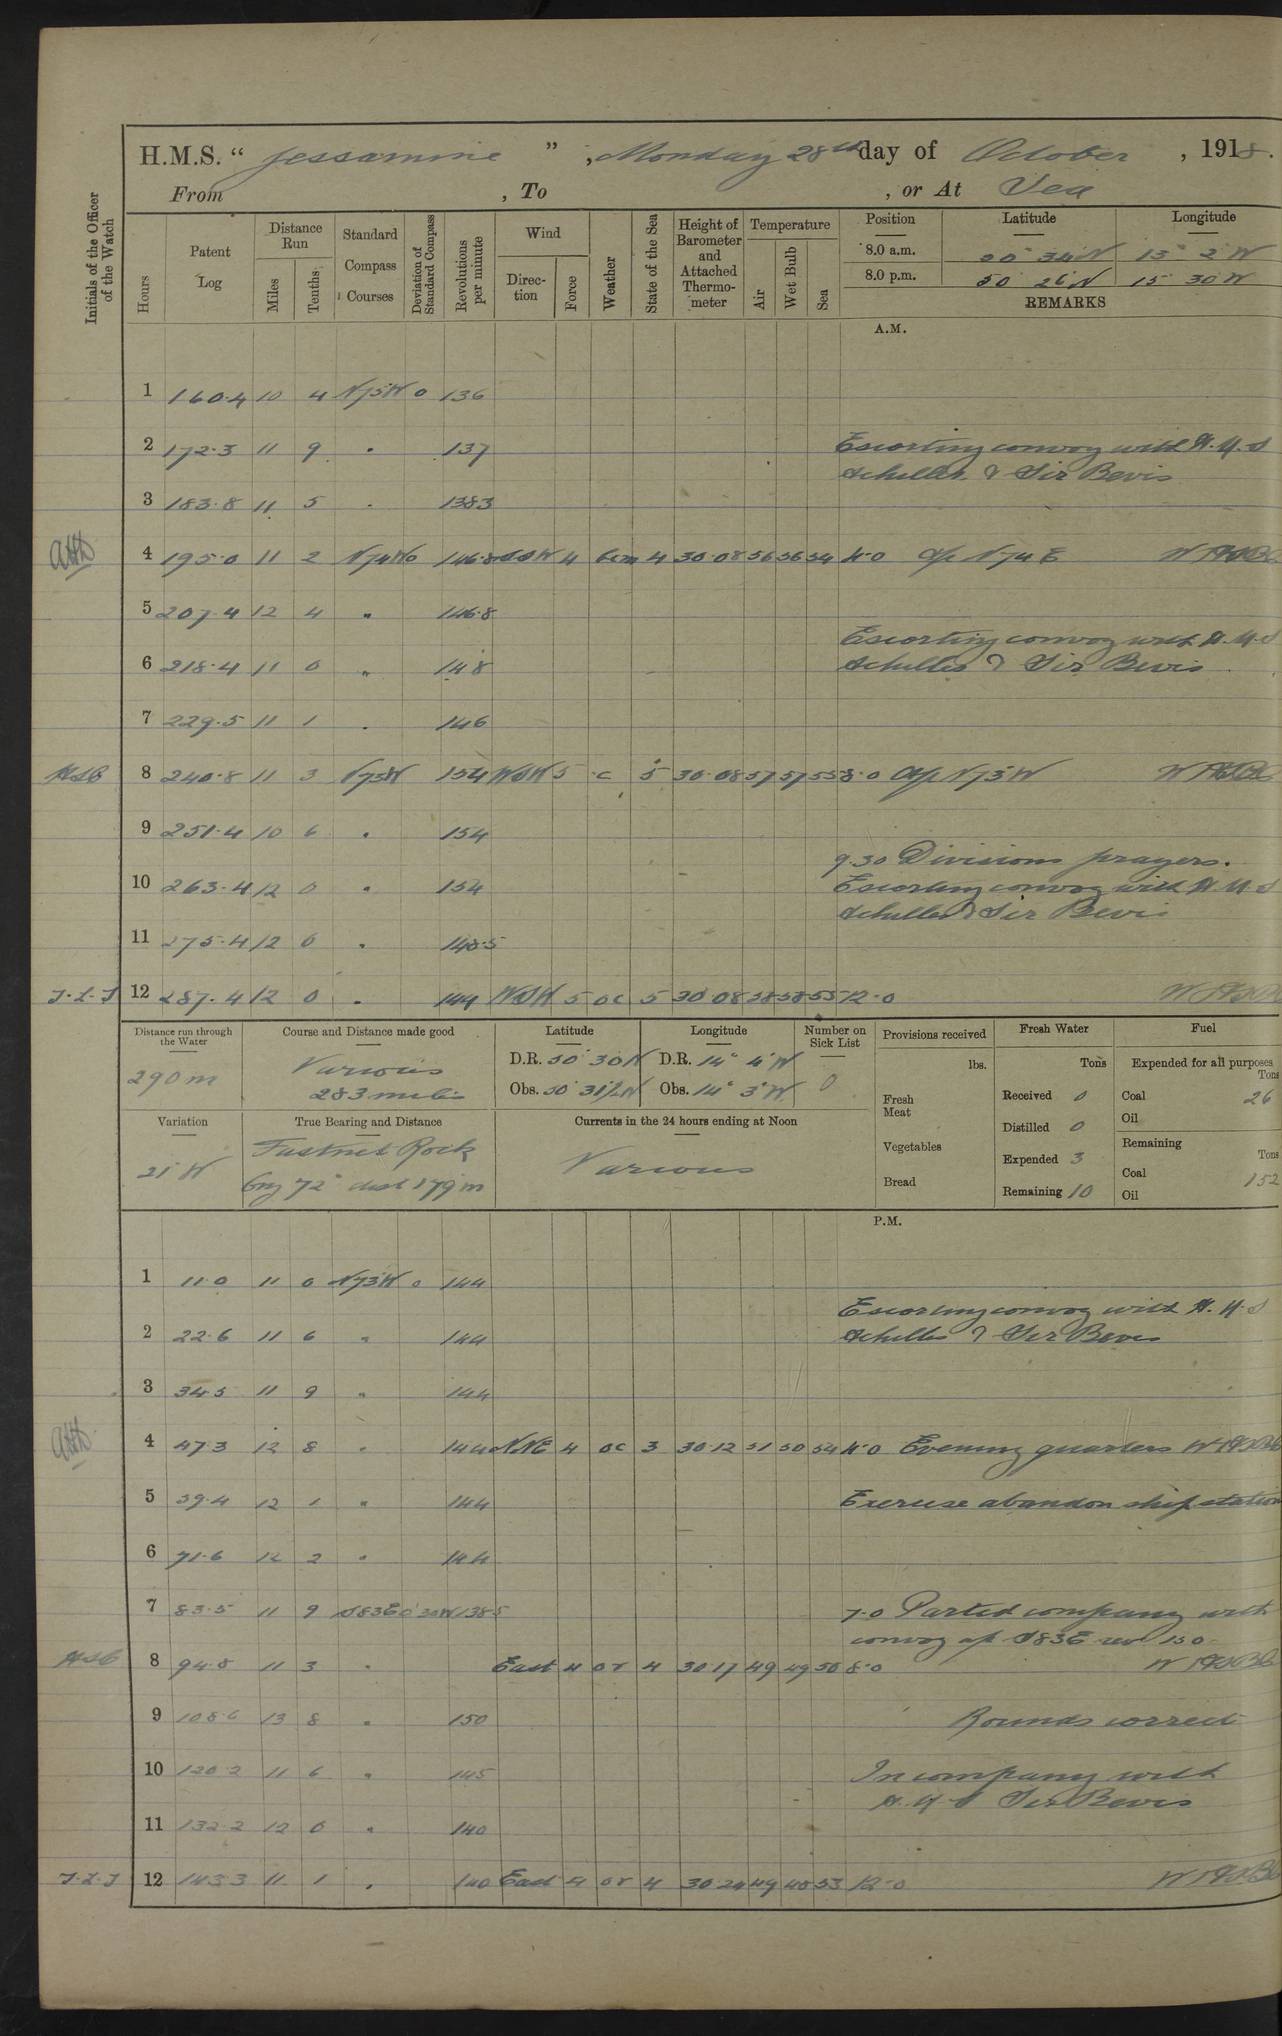 H.M.S. “ Jessamine ” , Monday 28th day of October , 1918.
From , To , or At Sea
Initials of the Officer of the Watch
Hours
Patent Log
Distance Run
Miles Tenths
Standard Compass Courses
Deviation of Standard Compass
Revolutions per minute
Wind
Direction Force
Weather
State of the Sea
Height of Barometer and Attached Thermometer
Temperature
Air Wet Bulb Sea
Position Latitude Longitude
8.0 a.m. 50° 34 N 13° 2 W
8.0 p.m. 50 26 N 15 30 W
REMARKS
A.M.
1 160.4 10 4 N75W 0 136
2 172.3 11 9 " 137 Escorting convoy with H.M.S
Achilles & Sir Bevis
3 183.8 11 5 " 138.3
4 195.0 11 2 N74W 0 146.8 SSW 4 bcm 4 30.08 56 56 54 4.0 a/c N74E
5 207.4 12 4 " 146.8
Escorting convoy with H.M.S
6 218.4 11 0 " 148 Achilles & Sir Bevis
7 229.5 11 1 " 146
8 240.8 11 3 N73W 154 WSW 5 c 5 30.08 57 57 55 8.0 a/c N73W
9 251.4 10 6 " 154
9.30 Divisions prayers.
10 263.4 12 0 " 154 Escorting convoy with H.M.S
Achilles & Sir Bevis
11 275.4 12 0 " 148.5
J.L.J 12 287.4 12 0 " 144 WSW 5 oc 5 30.08 58 58 55 12.0
Distance run through the Water
290m
Course and Distance made good
Various
283 miles
Latitude
D.R. 50° 30N
Obs. 50° 31½N
Longitude
D.R. 14° 4'W
Obs. 14° 3'W
Number on Sick List
0
Provisions received
lbs.
Fresh Meat
Vegetables
Bread
Fresh Water
Tons
Received 0
Distilled 0
Expended 3
Remaining 10
Fuel
Expended for all purposes
Tons
Coal 26
Oil
Remaining
Tons
Coal 152
Oil
Variation
21°W
True Bearing and Distance
Fastnet Rock
brg 72° dist 179m
Currents in the 24 hours ending at Noon
Various
P.M.
1 11.0 11 0 N73W 0 144
Escorting convoy with H.M.S
2 22.6 11 6 " 144 Achilles & Sir Bevis
3 34.5 11 9 " 144
4 47.3 12 8 " 144 NNE 4 oc 3 30.12 51 50 54 4.0 Evening quarters
5 59.4 12 1 " 144 Exercise abandon ship station
6 71.6 12 2 " 144
7 83.5 11 9 S83E 0°30W 138.5 7.0 Parted company with
convoy a/c S83E rev 150
8 94.8 11 3 " East 4 or 4 30.17 49 49 50 8.0
9 108.6 13 8 " 150 Rounds correct
10 120.2 11 6 " 145 In company with
H.M.S Sir Bevis
11 132.2 12 0 " 140
J.L.J 12 143.3 11 1 " 140 East 4 or 4 30.24 49 48 53 12.0